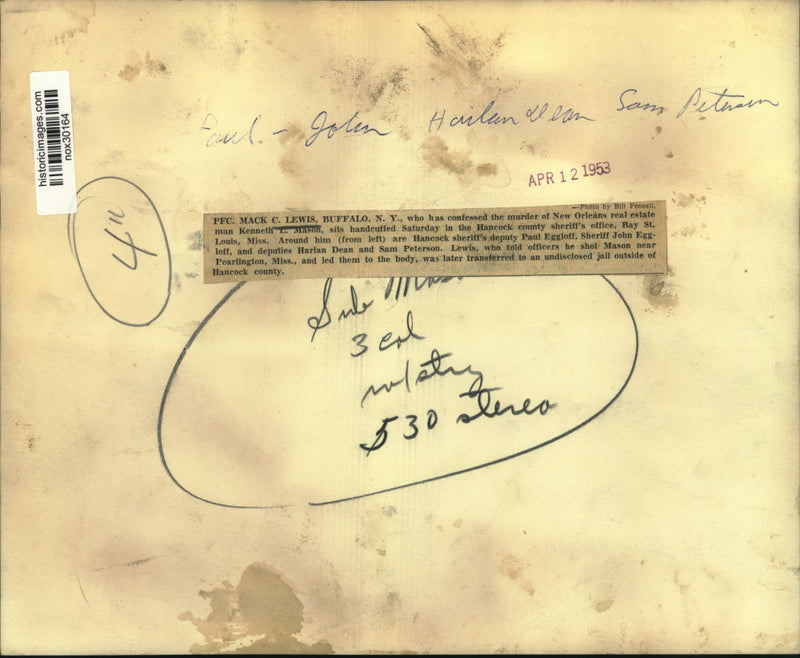 Paul - John Harlan Dean Sam Petersen
historicimages.com
nox30164
APR 12 1953
4"
—Photo by Bill Fennell.
PFC. MACK C. LEWIS, BUFFALO, N. Y., who has confessed the murder of New Orleans real estate
man Kenneth L. Mason, sits handcuffed Saturday in the Hancock county sheriff's office, Bay St.
Louis, Miss. Around him (from left) are Hancock sheriff's deputy Paul Eggloff, Sheriff John Egg-
loff, and deputies Harlan Dean and Sam Peterson. Lewis, who told officers he shot Mason near
Pearlington, Miss., and led them to the body, was later transferred to an undisclosed jail outside of
Hancock county.
3 col
w/stry
530 stereo